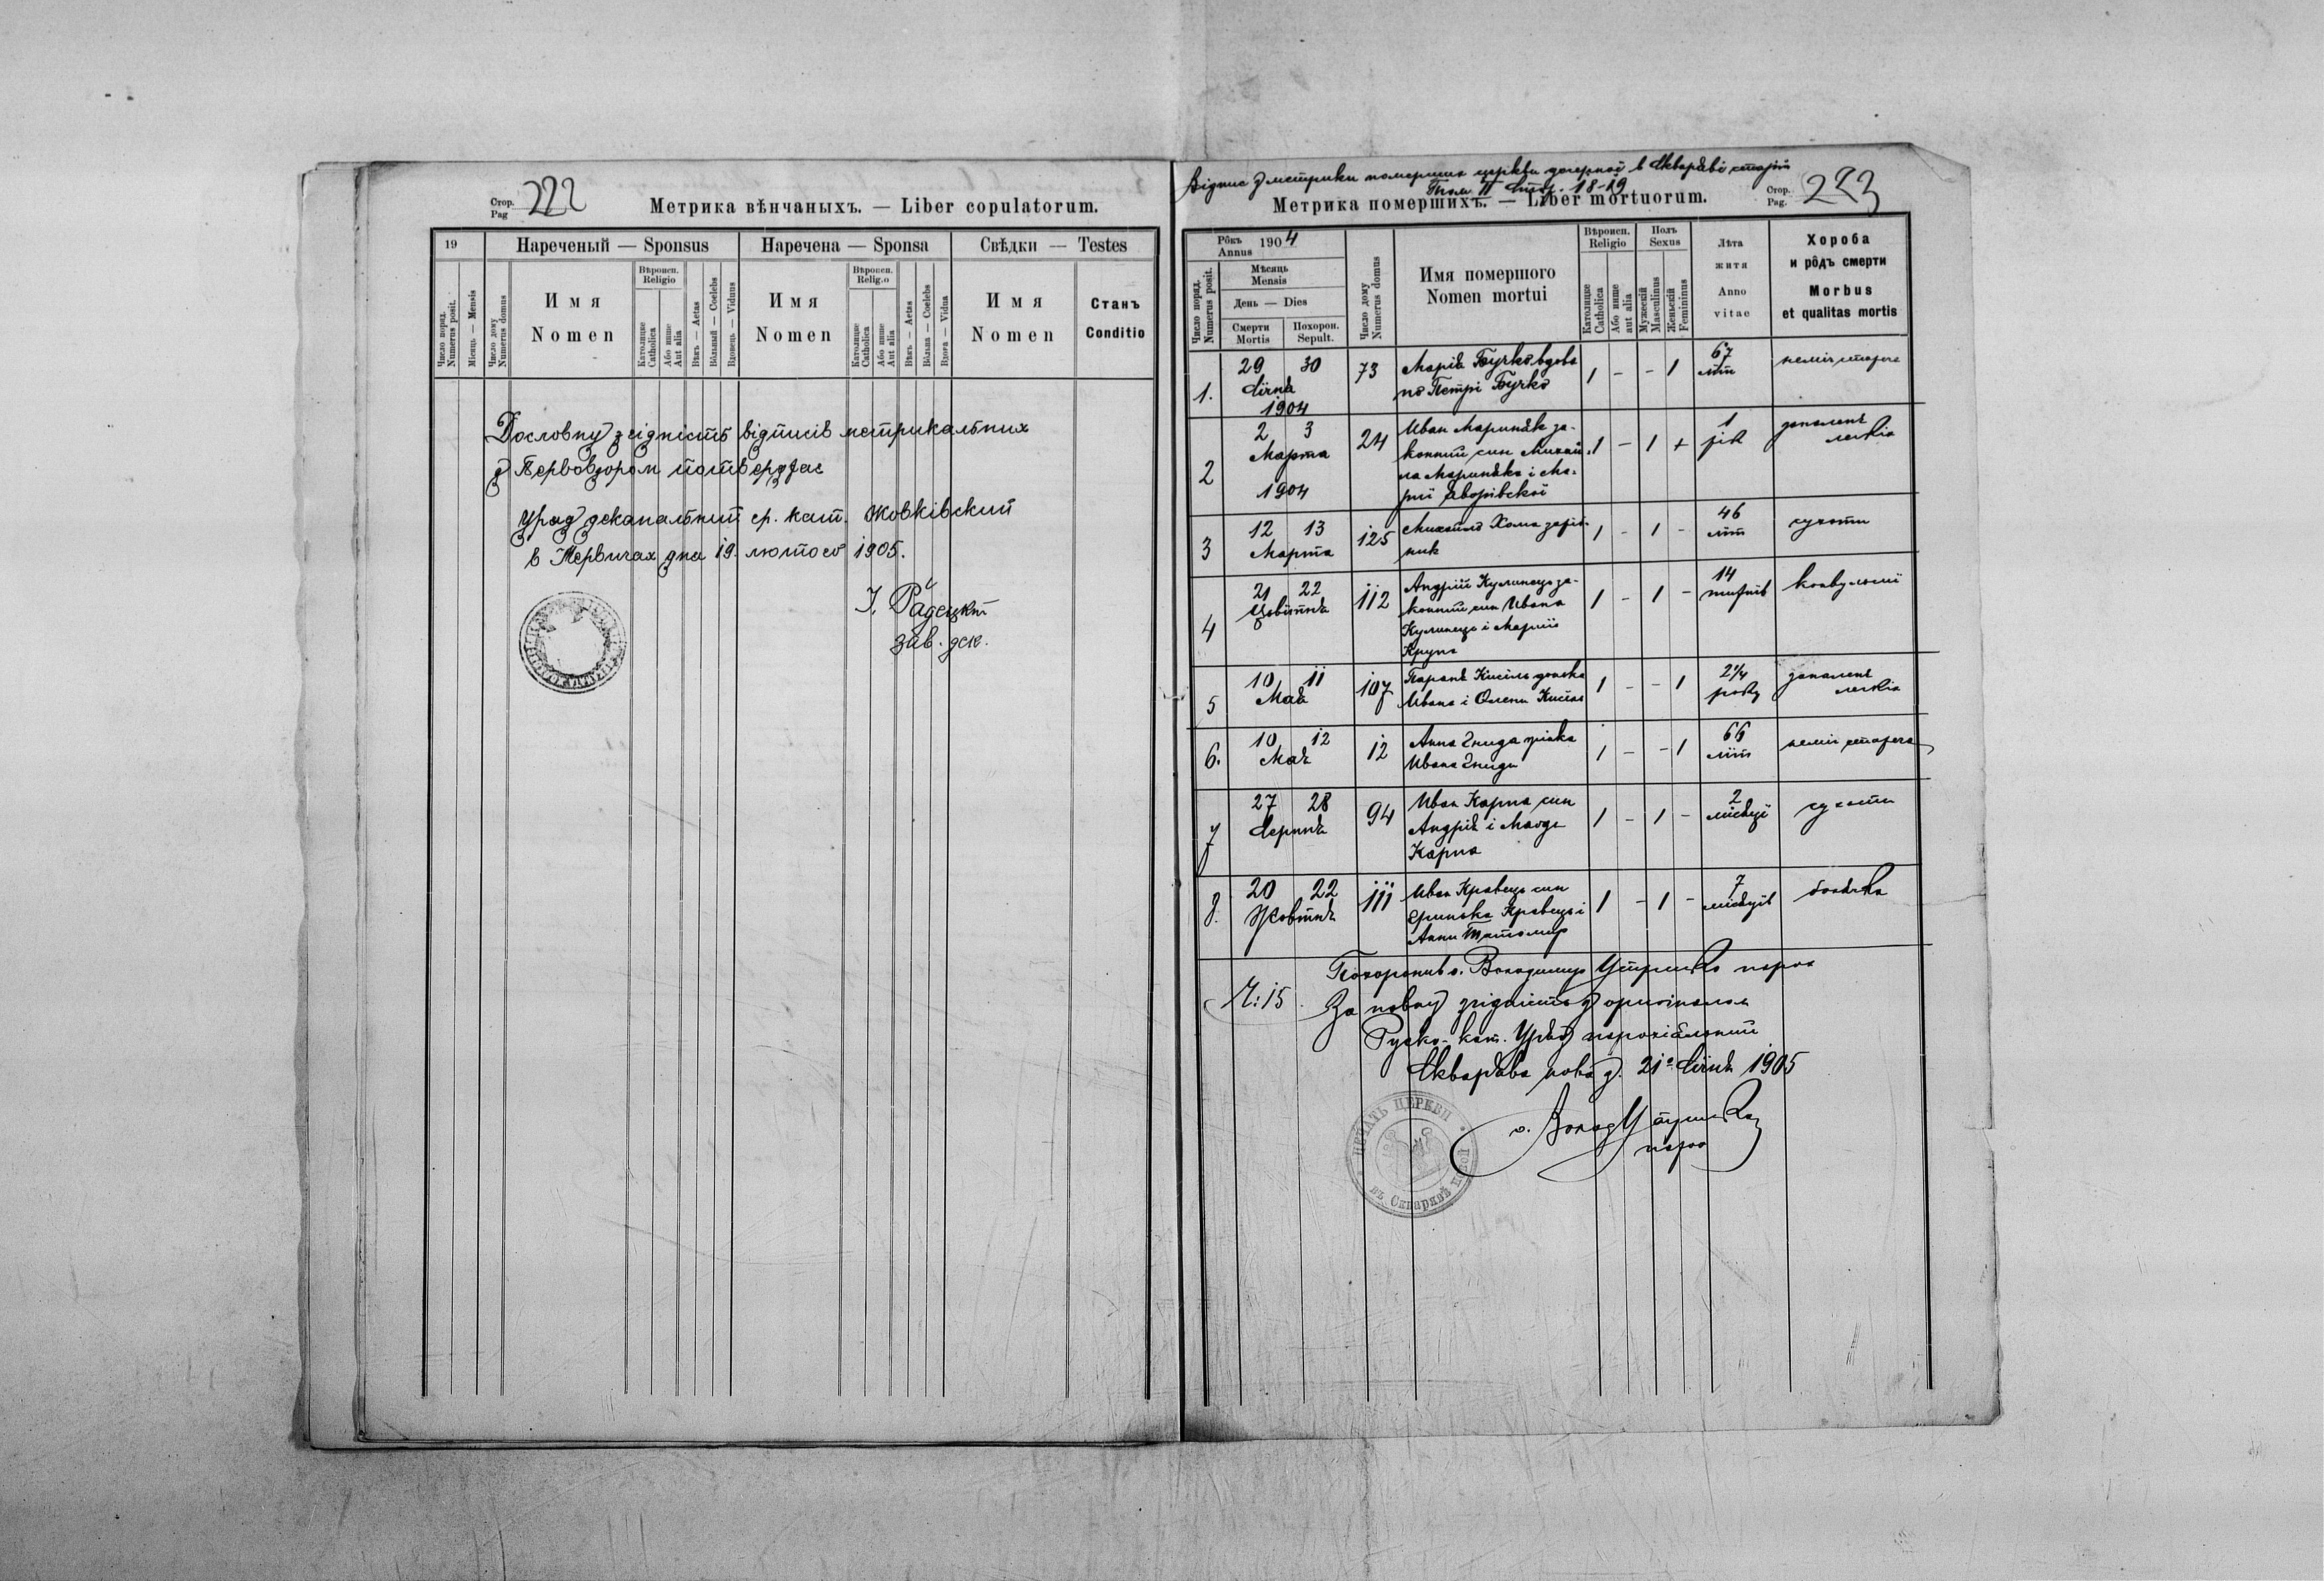 Стор. Pag 222
Метрика вѣнчаныхъ. — Liber copulatorum.
19
Нареченый — Sponsus
Наречена — Sponsa
Свѣдки — Testes
Число поряд. Numerus posit.
Місяць — Mensis
Число дому Numerus domus
Имя Nomen
Вѣроисп. Religio
Католицке Catholica
Або инше Aut alia
Вѣкъ — Aetas
Вôльный — Coelebs
Вдовець — Viduus
Имя Nomen
Вѣроисп. Religio
Католицке Catholica
Або инше Aut alia
Вѣкъ — Aetas
Вôльна — Coelebs
Вдова — Vidua
Имя Nomen
Станъ Conditio
Дословну згідність відписів метрикальних
з Первовзором потверджає
Уряд деканальний гр. кат. Жовківский
в Мервичах дна 19. лютого 1905.
зав. дек.
Відпис з метрики померших церкви дочерної в Скваряві старій
Том II стор. 18-19
Метрика помершихъ. — Liber mortuorum.
Стор. Pag. 223
Рôкъ Annus 1904
Число поряд. Numerus posit.
Мѣсяць Mensis
День — Dies
Смерти Mortis
Похорон. Sepult.
Число дому Numerus domus
Имя помершого Nomen mortui
Вѣроисп. Religio
Католицке Catholica
Або инше aut alia
Полъ Sexus
Мужескій Masculinus
Женьскій Femininus
Лѣта житя Anno vitae
Хороба и рôдъ смерти Morbus et qualitas mortis
1. 29 30 Січня 1904 73 Марія Бучко вдова по Петрі Бучко 1 - - 1 67 літ неміч стареча
2 2 3 Марта 1904 24 Иван Мариняк законний син Михайла Мариняка і Марії Яворівскої 1 - 1 + 1 рік запаленє легкіх
3 12 13 Марта 125 Михайло Хома зарібник 1 - 1 - 46 літ сухоти
4 21 22 Цьвітня 112 Андрій Кулинець законний син Ивана Кулинець і Марії Крупа 1 - 1 - 14 тижнів конвульсиї
5 10 11 Мая 107 Параня Кисіль донька Ивана і Олени Кисіль 1 - - 1 2 1/4 року запаленє легкіх
6. 10 12 Мая 12 Анна Гнида жінка Ивана Гниди 1 - - 1 66 літ неміч стареча
7 27 28 Серпня 94 Иван Карпа син Андрія і Магди Карпа 1 - 1 - 2 місяці сухоти
8. 20 22 Жовтня 111 Иван Кравець син Гринька Кравець і Анни Титомир 1 - 1 - 7 місяців болячка
Похоронив о. Володимир Устрицкій парох
Ч: 15 За повну згідність з оригіналом
Руско-кат. Уряд парохіяльний
Скварява нова д. 21го Січня 1905
о. Волод Устрицкий
парох
ПЕЧАТЬ ЦЕРКВИ
въ Скварявѣ новой